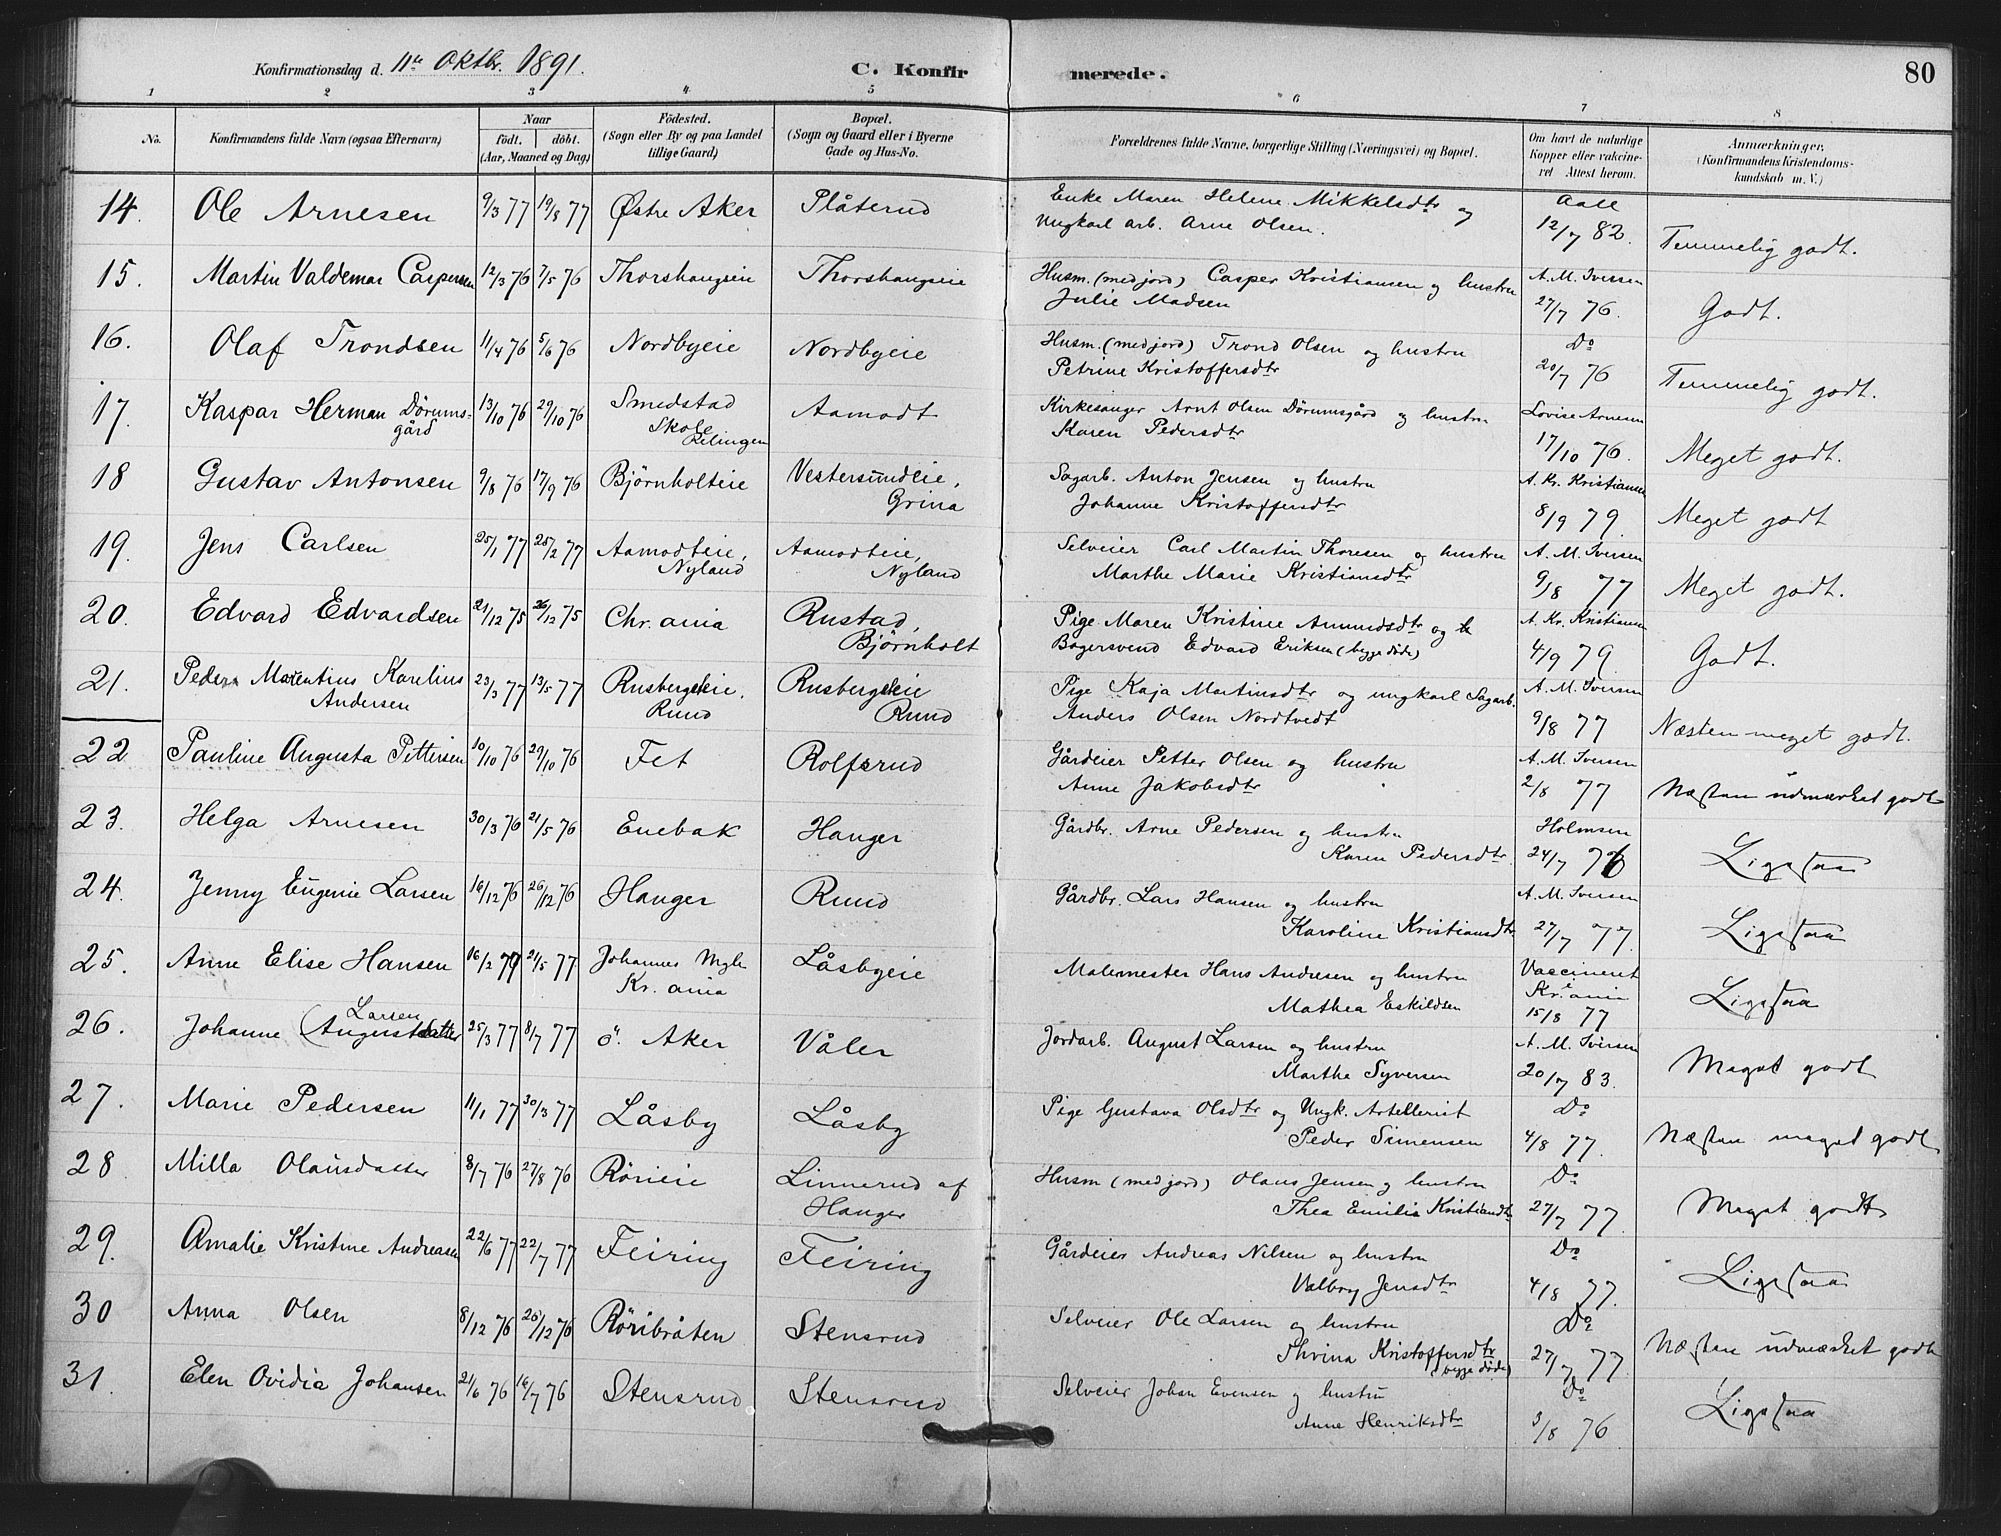 Konfirmationsdag d. 11te Oktbr. 1891. C. Konfirmerede. 80
1 2 3 4 5 6 7 8
No. Konfirmandens fulde Navn (ogsaa Efternavn) Naar födt. döbt. (Aar, Maaned og Dag) Födested. (Sogn eller By og paa Landet tillige Gaard) Bopæl. (Sogn og Gaard eller i Byerne Gade og Hus-No. Forældrenes fulde Navne, borgerlige Stilling (Næringsvei) og Bopæl. Om havt de naturlige Kopper eller vakcineret Attest herom. Anmærkninger. (Konfirmandens Kristendomskundskab m. V.)
14. Ole Arnesen 9/3 77 19/8 77 Østre Aker Plåterud Enke Maren Helene Mikkelsdtr og Aall
Ungkarl arb. Arne Olsen. 12/7 82. Temmelig godt.
15. Martin Valdemar Caspersen 12/3 76 7/5 76 Thorshaugeie Thorshaugeie Husm. (med jord) Casper Kristiansen og hustru A. M. Iversen
Julie Madsen 27/7 76. Godt.
16. Olaf Trondsen 11/4 76 5/6 76 Nordbyeie Nordbyeie Husm. (med jord) Trond Olsen og hustru Do
Petrine Kristoffersdtr 20/7 76 Temmelig godt.
17. Kaspar Herman Dörumsgård 13/10 76 29/10 76 Smedstad Skole Relingen Aamodt Kirkesanger Arnt Olsen Dörumsgård og hustru Lovise Arnesen
Karen Pedersdtr 17/10 76. Meget godt.
18 Gustav Antonsen 9/8 76 17/9 76 Bjørnholteie Vestersundeie, Grina Sagarb. Anton Jensen og hustru A. Kr. Kristiansen
Johanne Kristoffersdtr 8/9 79. Meget godt
19. Jens Carlsen 25/1 77 25/2 77 Aamodteie, Nyland Aamodteie, Nyland Selveier Carl Martin Thoresen og hustru A. M. Iversen
Marthe Marie Kristiansdtr 9/8 77 Meget godt.
20. Edvard Edvardsen 21/12 75 26/12 75 Chr.ania Rustad, Bjørnholt Pige Maren Kristine Amundsdtr og A. Kr. Kristiansen
Bagersvend Edvard Eriksen (begge døde) 4/9 79 Godt.
21. Peder Marentius Karelius Andersen 23/3 77 13/5 77 Rusbergseie, Rund Rusbergseie Rund Pige Kaja Martinsdtr og ungkarl Sagarb. A. M. Iversen
Anders Olsen Nordtvedt 9/8 77 Næsten meget godt.
22 Pauline Augusta Pettersen 10/10 76 29/10 76 Fet Rolfsrud Gårdeier Petter Olsen og hustru A. M. Iversen
Anne Jakobsdtr 2/8 77 Næsten udmærket godt
23. Helga Arnesen 30/3 76 21/5 76 Enebak Hanger Gårdbr. Arne Pedersen og hustru Holmsen
Karen Pedersdtr. 24/7 76 Ligesaa
24. Jenny Eugenie Larsen 16/12 76 26/12 76 Hanger Rund Gårdbr. Lars Hansen og hustru A. M. Iversen
Karoline Kristiansdtr 27/7 77. Ligesaa
25. Anne Elise Hansen 16/2 77 21/5 77. Johannes Mgh. Kr. ania Låsbyeie Malemester Hans Andresen og hustru Vaccineret
Mathea Eskildsen Kr. ania 15/8 77 Ligesaa
26. Johanne (Augustdatter Larsen 25/3 77 8/7 77 ö. Aker Våler Jordarb. August Larsen og hustru A. M. Iversen
Marthe Syversen 20/7 83. Meget godt
27. Marie Pedersen 11/1 77 30/3 77 Låsby Låsby Pige Gustava Olsdtr og Ungk. Artellerist Do
Peder Simensen 4/8 77. Næsten meget godt
28 Milla Olausdatter 8/7 76 27/8 76 Rörieie Linnerud af Hanger Husm (med jord) Olaus Jensen og hustru Do
Thea Emilie Kristiansdtr 27/7 77. Meget godt
29. Amalie Kristine Andreasen 22/6 77 22/7 77 Feiring Feiring Gårdeier Andreas Nilsen og hustru Do
Valborg Jensdtr 4/8 77. Ligesaa
30 Anna Olsen 8/12 76 26/12 76 Röribråten Stensrud Selveier Ole Larsen og hustru Do
Thrina Kristoffersdtr (begge døde) 27/7 77. Næsten udmærket godt
31. Elen Ovidia Johansen 21/6 76 16/7 76 Stensrud Stensrud Selveier Johan Evensen og hustru Do
Anne Henriksdtr 3/8 76 Ligesaa